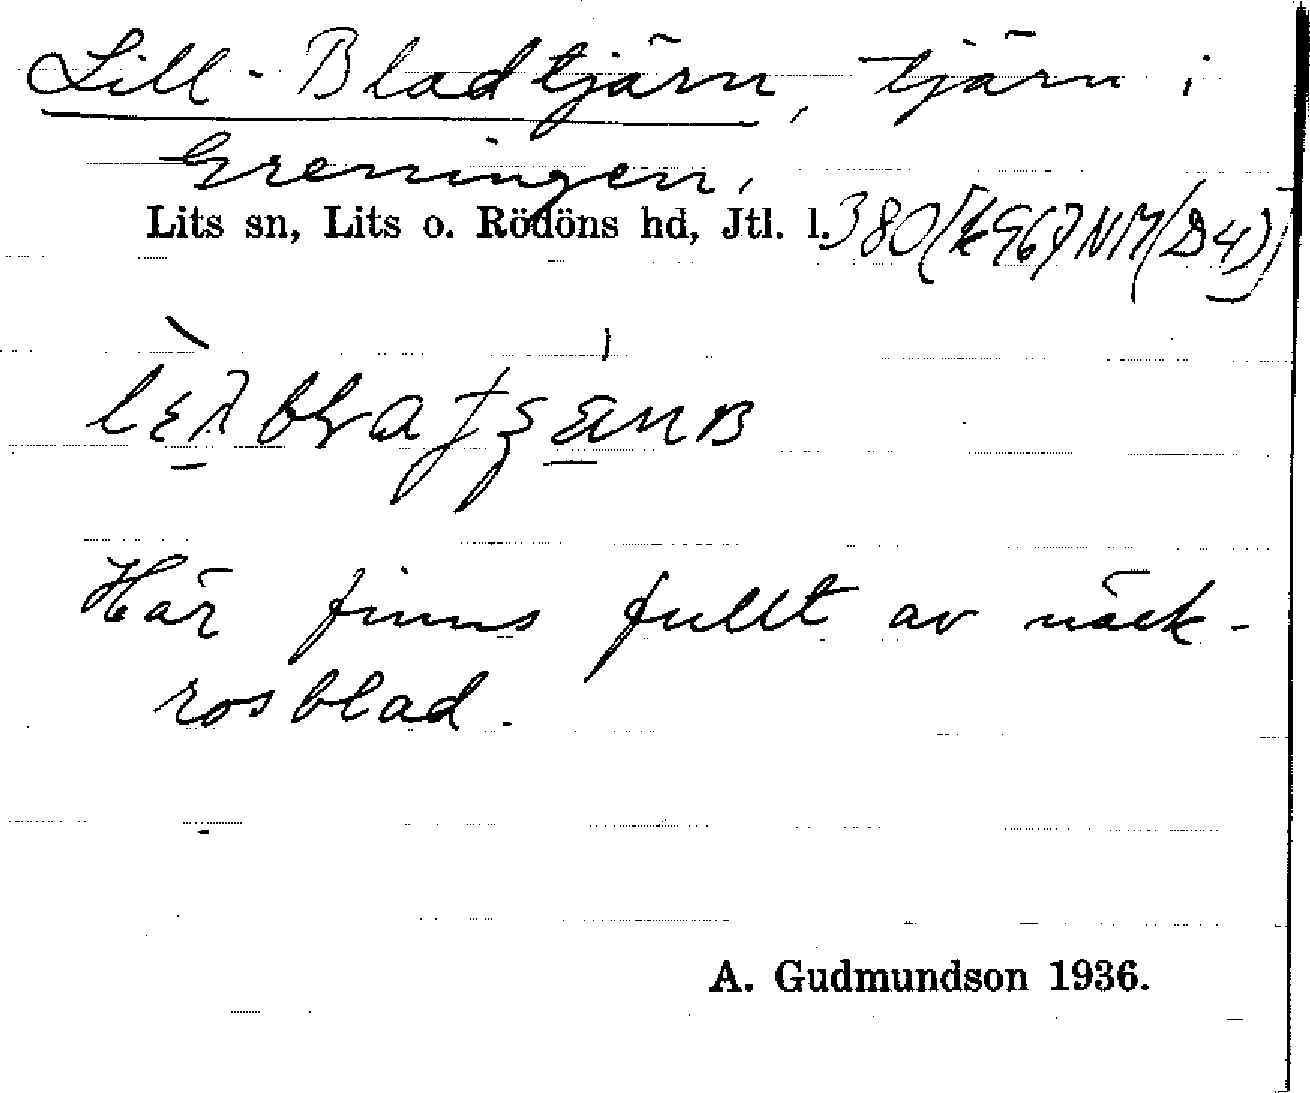 Lill-Bladtjärn, tjärn i
Greningen.
Lits sn, Lits o. Rödöns hd, Jtl. l. 380
Här finns fullt av näck-
rosblad.
A. Gudmundson 1936.